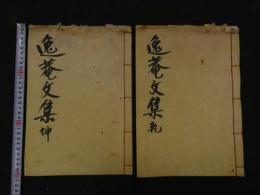 逸菴文集 乾
逸菴文集 坤